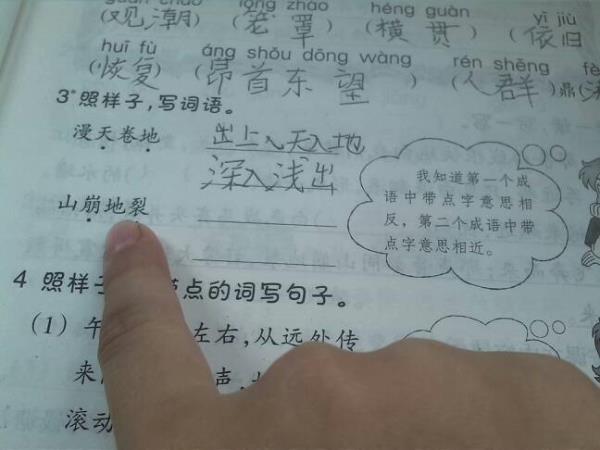 guān cháo lǒng zhào héng guàn yī jiù
(观潮) (笼罩) (横贯) (依归
huī fù áng shǒu dōng wàng rén shēng fè
(恢复) (昂首东望) (人群)鼎(沸
3*照样子,写词语。
漫天卷地 出上入天入地
深入浅出
山崩地裂
我知道第一个成
语中带点字意思相
反,第二个成语中带
点字意思相近。
4 照样子 点的词写句子。
(1) 午 左右,从远处传
来 声,
滚动